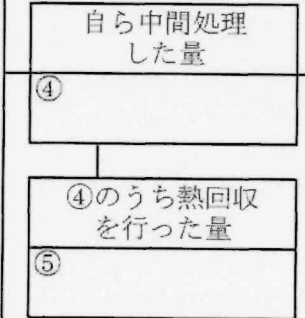 自ら中間処理
した量
④
④のうち熱回収
を行った量
⑤